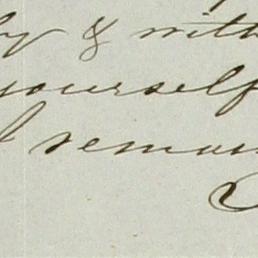 by & with
yourself
I remain